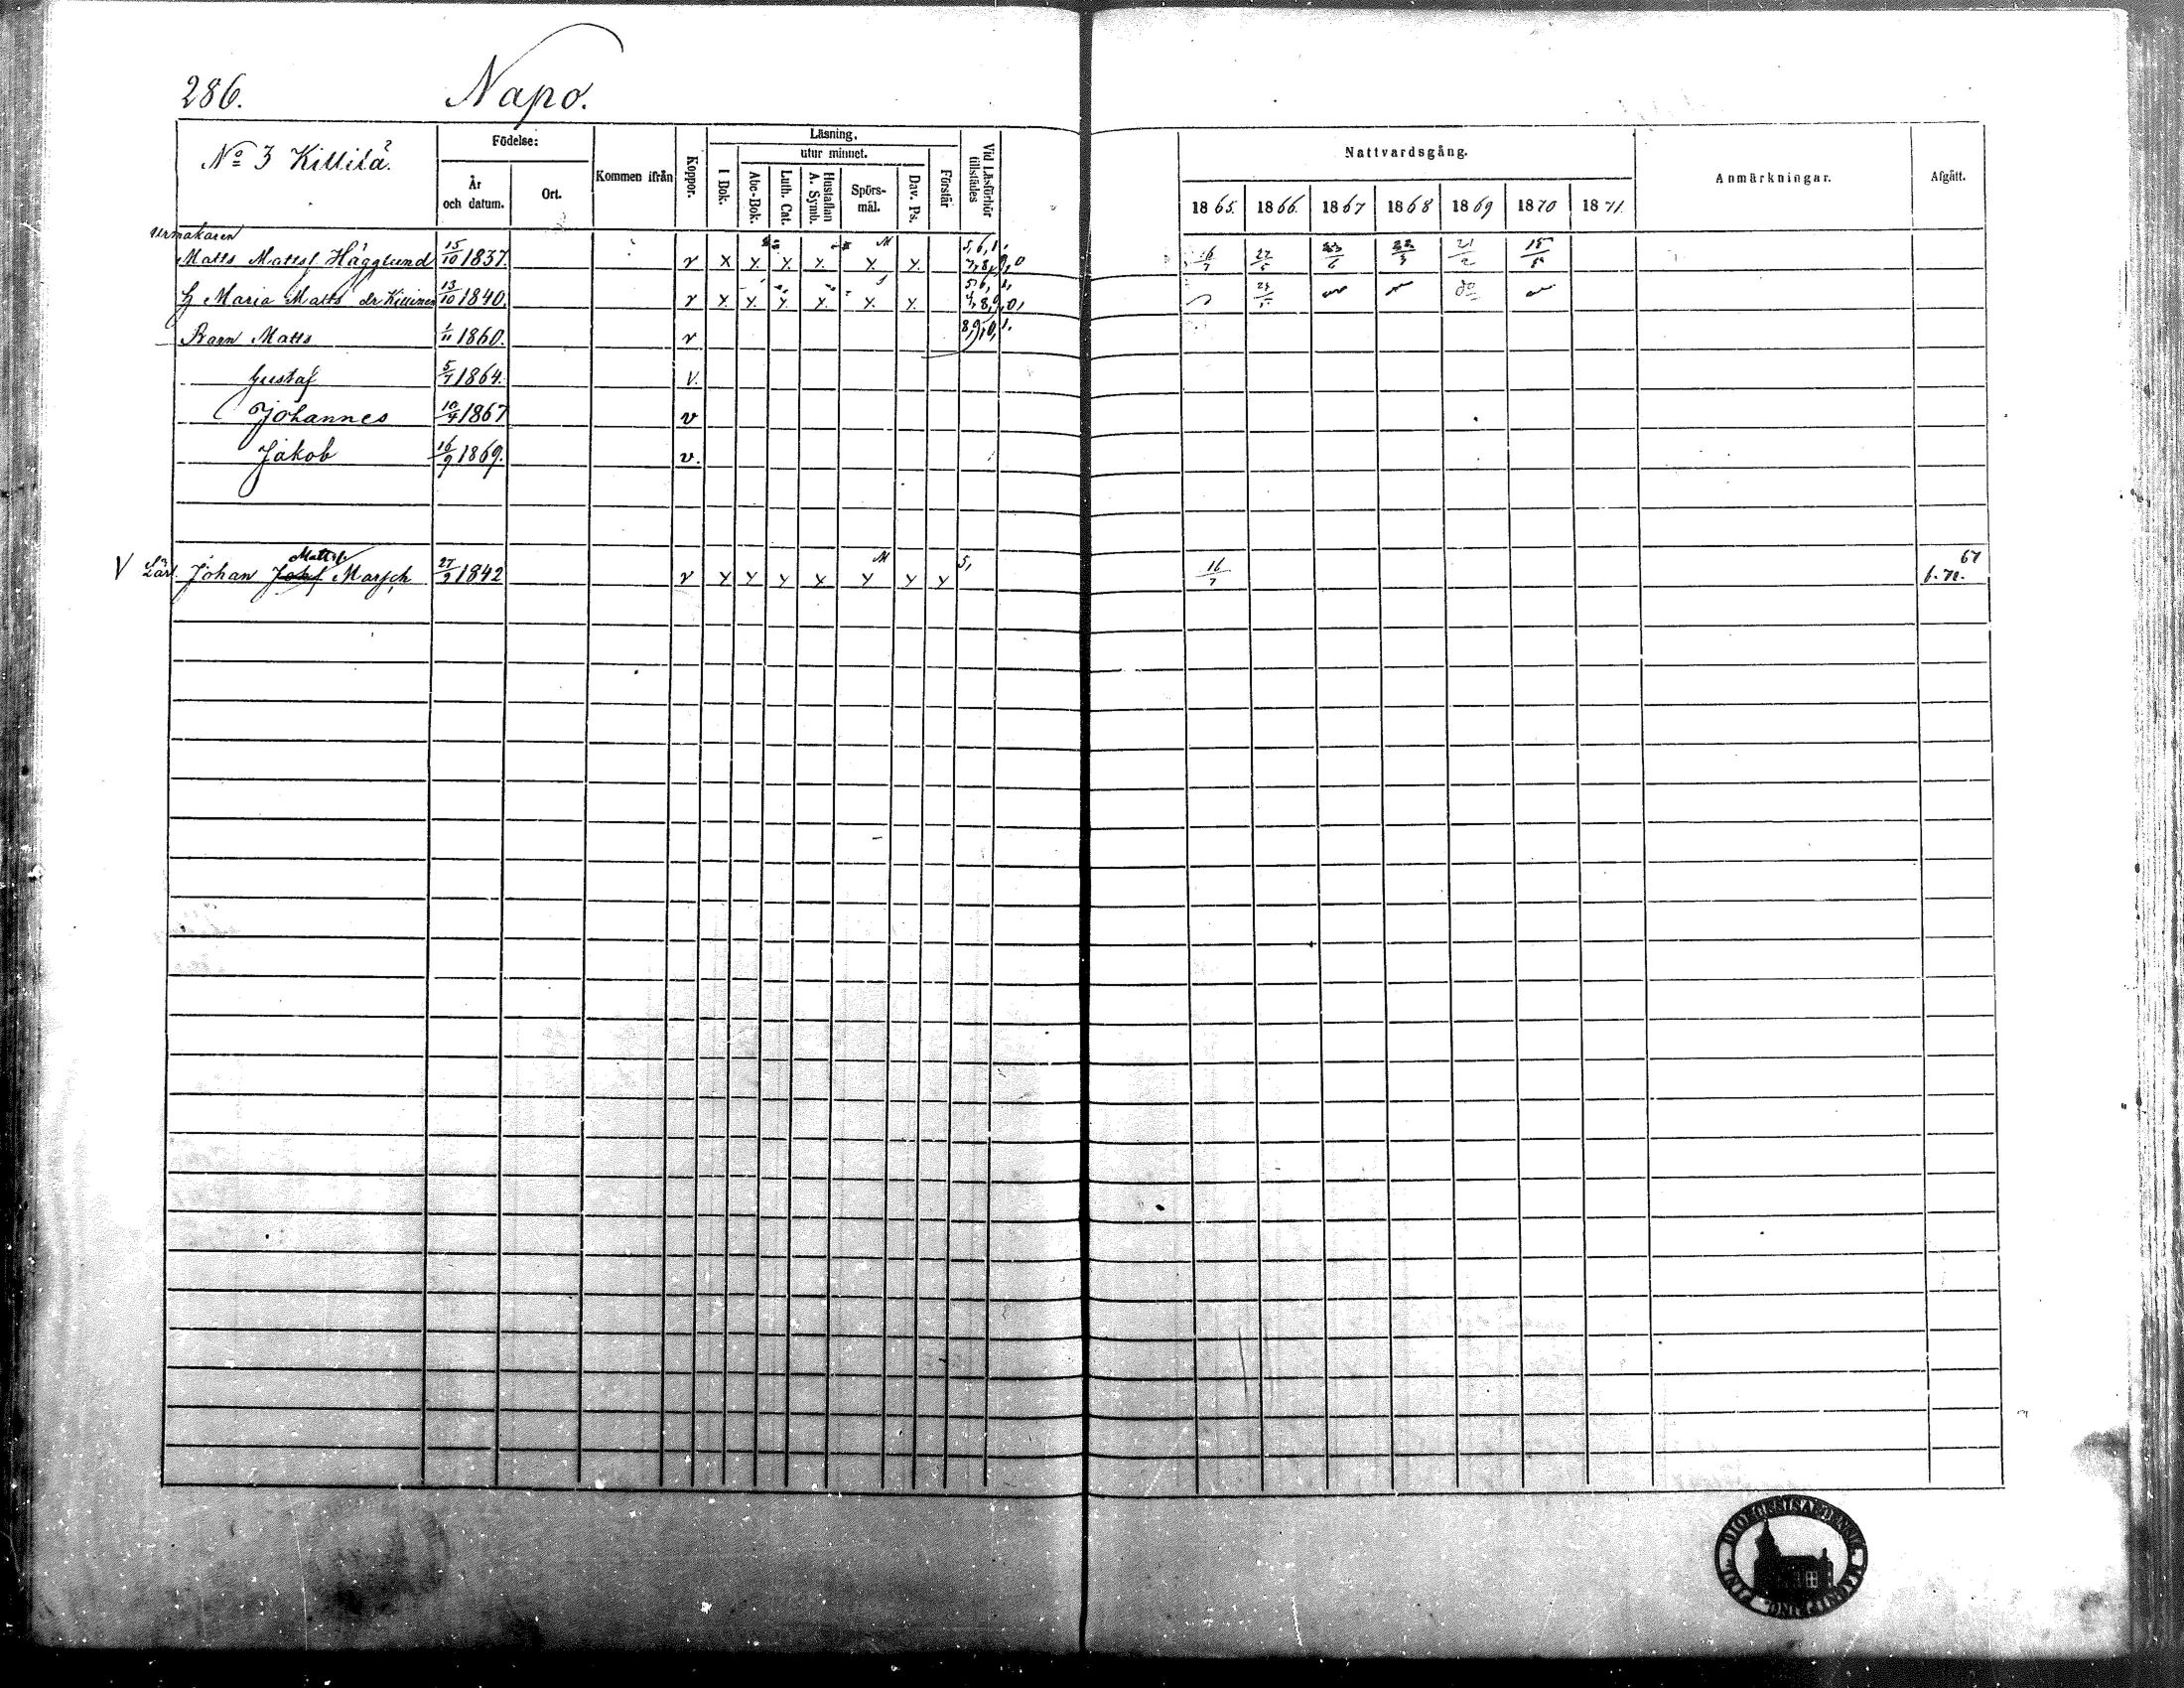 286. Napo.
No 3 Killilä.
Födelse:
År och datum.
Ort.
Kommen ifrån
Koppor.
Läsning.
I Bok.
utur minnet.
Abc-Bok.
Luth. Cat.
Hustaflan A. Symb.
Spörsmål.
Dav. Ps.
Förstår
Vid Läsförhör tillstädes
Nattvardsgång.
1865. 1866. 1867 1868 1869 1870 1871.
Anmärkningar.
Afgått.
Urmakaren
Matts Mattss Hägglund 15/10 1837. v x y. y. y. M y. y. 5,6,1. 7,8,9,0 16/7 27/5 23/6 22/3 21/2 15/5
H Maria Matts dr Killinen 13/10 1840. v y. y. y. y. y. y. 5,6,1, 7,8,9,0,
Barn Matts 1/11 1860. v 8,9,0,1.
Gustaf 5/7 1864. v.
Johannes 10/4 1867 v
Jakob 16/9 1869. v.
V Lärl. Johan Mattss Marsch 27/9 1842 v y y y x y M y y 5, 16/7 67
DIOECESISABOENSIS